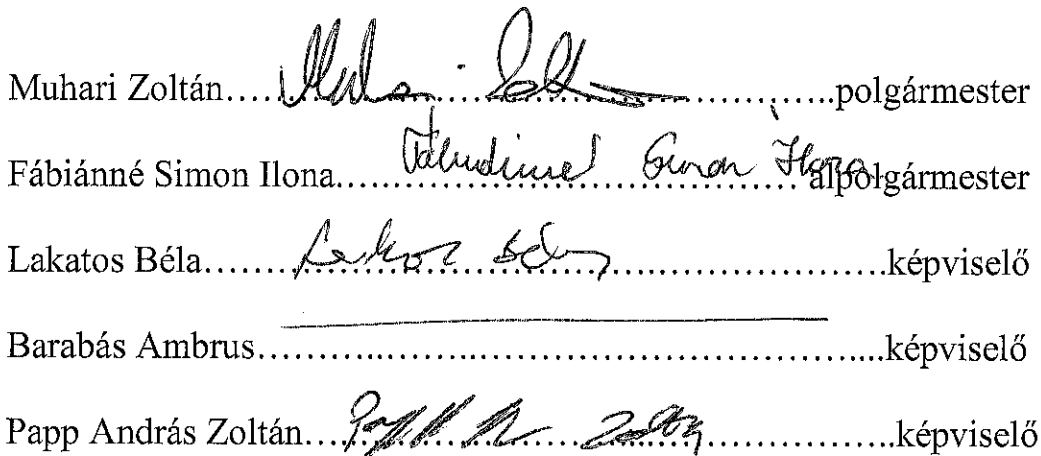 Muhari Zoltán.....Muhari Zoltán.....polgármester
Fábiánné Simon Ilona.....Fábiánné Simon Ilona.....alpolgármester
Lakatos Béla.....Lakatos Béla.....képviselő
Barabás Ambrus.....képviselő
Papp András Zoltán.....Papp Zoltán.....képviselő